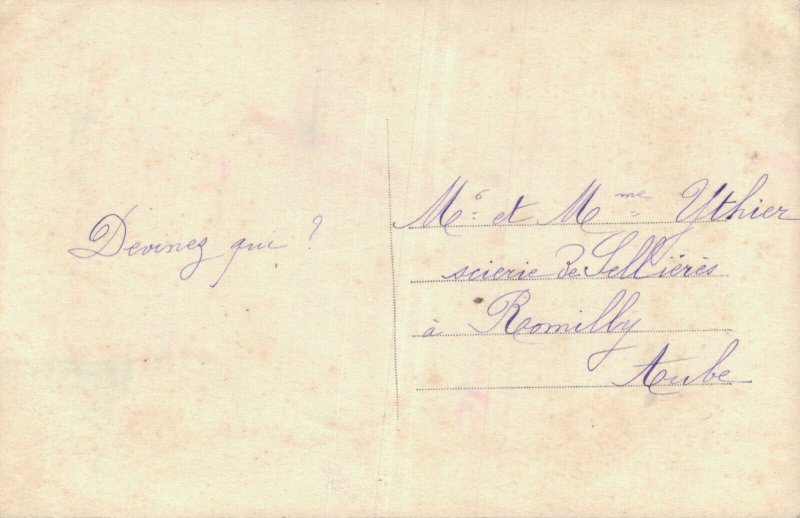 Devinez qui ?
Mr et Mme Ythier
scierie de Sellières
à Romilly
Aube